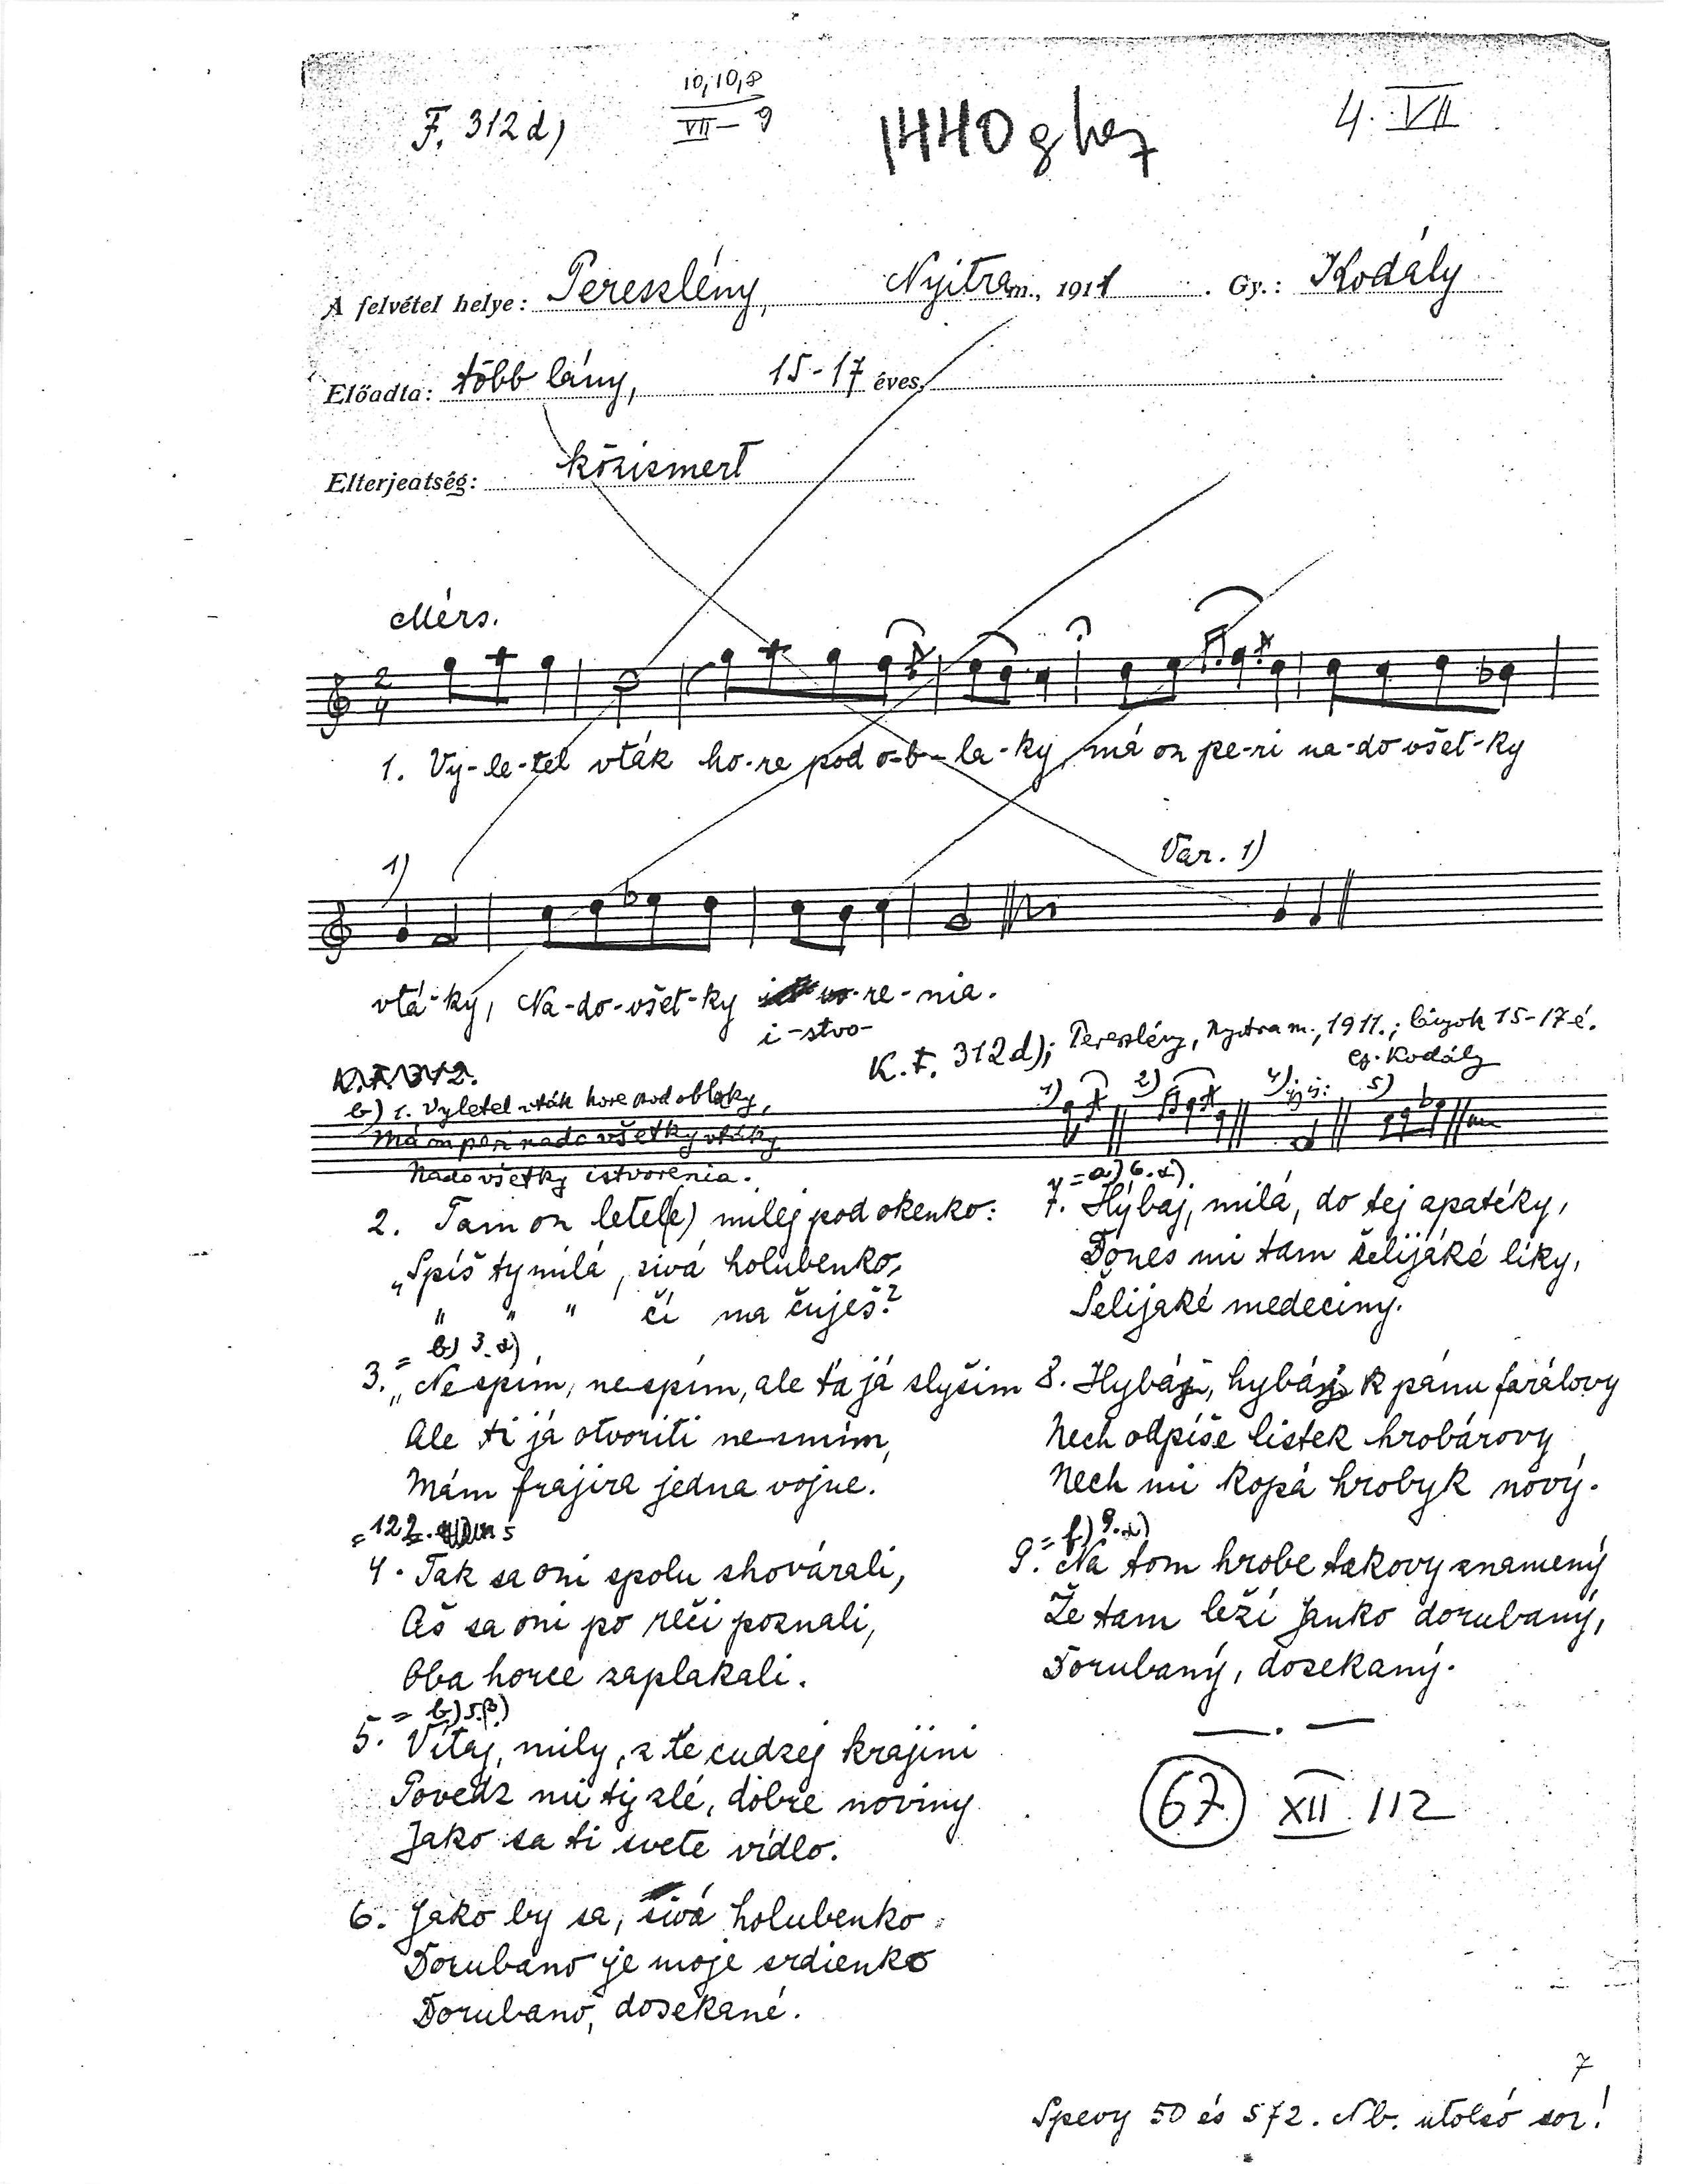 F. 312 d)
10, 10, 8
VII – 9
1440 g hez
4. VII
A felvétel helye: Pereszlény, Nyitra m., 1911. Gy.: Kodály
Előadta: több lány, 15-17 éves,
Elterjedtség: közismert
Mérs.
1. Vy-le-tel vták ho-re pod o-b-la-ky, má on pe-ri na-do všet-ky
1) Var. 1)
vtá-ky, Na-do-všet-ky re-nia.
i-stvo-
K. F. 312 d); Pereszlény, Nyitra m., 1911.; lányok 15-17 é.
Gy. Kodály
K. F. 312.
b) 1. Vyletel vták hore pod oblaky,
Má on peri nado všetky vtáky
Nado všetky istvorenia.
1) 2) 4) 5)
2. Tam on letel(e) milej pod okenko:
„Spíš ty milá, sivá holubenko,
" " " čí ma čuješ?
= b) 3. α)
3. „Nespím, nespím, ale ťa já slyším
Ale ti já otvoriti nesmím,
Mám frajira jedna vojne.
= 122.
4. Tak sa oni spolu shovárali,
Aš sa oni po reči poznali,
Oba horce zaplakali.
= b) 5. β)
5. Vítaj, mily, z te cudzej krajini
Povedz mi ty zlé, dobre noviny
Jako sa ti svete vídlo.
6. Jako by sa, sivá holubenko
Dorubano je moje srdienko
Dorubano, dosekané.
= a) 6. α)
7. Hýbaj, milá, do tej apatéky,
Dones mi tam šelijáké líky,
Šelijaké medeciny.
8. Hybáj, hybáj k pánu farálovy
Nech odpíše listek hrobárovy
Nech mi kopá hrobyk nový.
= f) 9. α)
9. Na tom hrobe takovy znamený
Že tam leží Janko dorubaný,
Dorubaný, dosekaný.
67 XII 112
7
Spevy 50 és 572. Nb. utolsó sor!